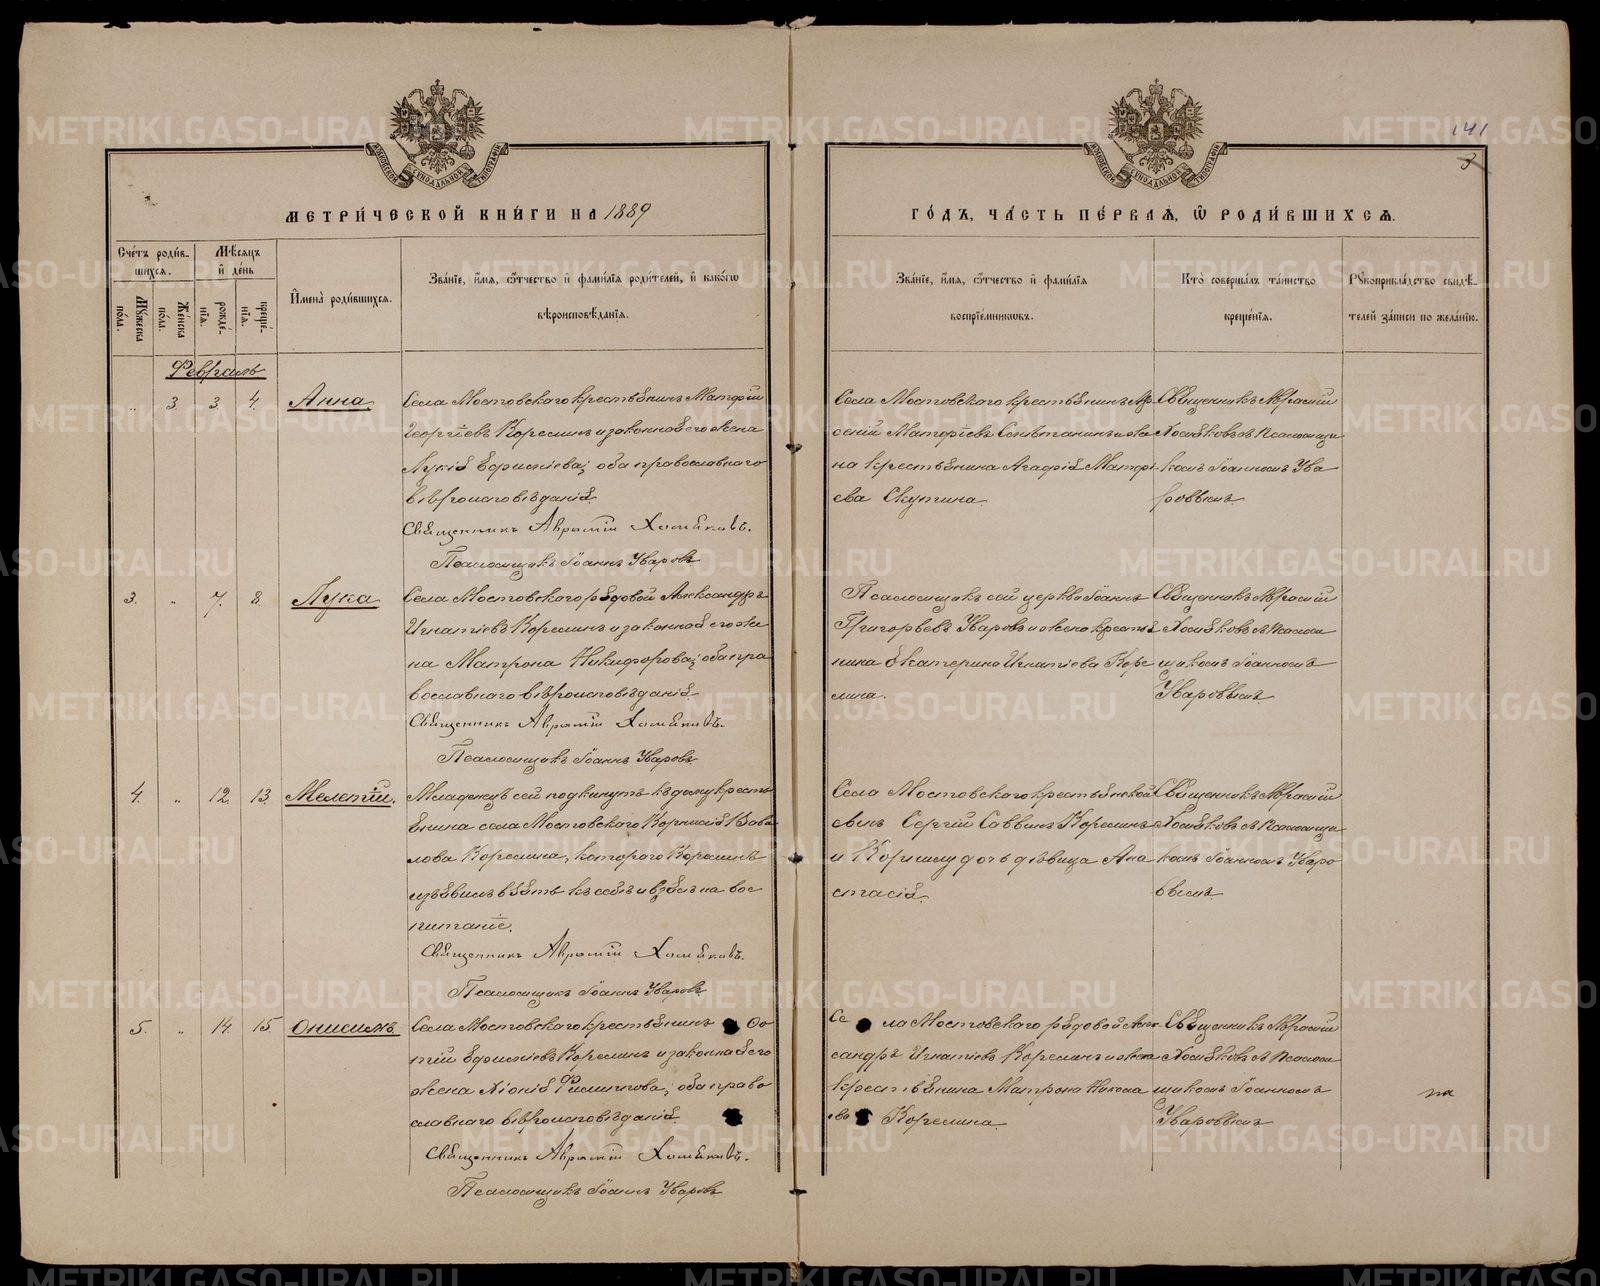 141
3
МЕТРИ́ЧЕСКОЙ КНИ́ГИ НА 1889
ГО́ДЪ, ЧА́СТЬ ПЕ́РВАѦ, Ѡ҆ РОДИ́ВШИХСѦ.
Сче́тъ роди́в-
шихсѧ.
Мѣ́сѧцъ
и҆ де́нь
Мꙋ́жеска
по́ла.
Же́нска
по́ла.
рожде́-
нїѧ.
креще́-
нїѧ.
И҆мена̀ роди́вшихсѧ.
Зва́нїе, и҆́мѧ, ѻ҆́тчество и҆ фами́лїѧ роди́телей, и҆ како́гѡ
вѣроисповѣ́данїѧ.
Зва́нїе, и҆́мѧ, ѻ҆́тчество и҆ фами́лїѧ
воспрїе́мникѡвъ.
Кто̀ соверша́лъ та́инство
креще́нїѧ.
Рꙋкоприкла́дство свидѣ́-
телей за́писи по жела́нїю.
Февраль
" 3. 3. 4. Анна
Села Мостовского крестьянинъ Матфій
Георгіевъ Корелинъ и законная его жена
Лукія Ефимова; оба православнаго
вѣроисповѣданія
Священникъ Аврамій Хомяковъ.
Псаломщикъ Іоаннъ Уваровъ
Села Мостовского крестьянинъ Ар
сеній Матфіевъ и же
на крестьянина Агафія Матфі
ева Скутина.
Священникъ Аврамій
Хомяковъ съ псаломщи
комъ Іоанномъ Ува
ровымъ
3. " 7. 8. Лука
Села Мостовского рядовой Александръ
Игнатіевъ Корелинъ и законная его же
на Матрона Никифорова; оба пра
вославнаго вѣроисповѣданія
Священникъ Аврамій Хомяковъ.
Псаломщикъ Іоаннъ Уваровъ
Псаломщикъ сей церкви Іоаннъ
Григорьевъ Уваровъ и жена кресть
янина Екатерина Игнатіева Коре
лина.
Священникъ Аврамій
Хомяковъ съ псалом
щикомъ Іоанномъ
Уваровымъ
4. " 12. 13. Мелетій.
Младенецъ сей подкинутъ къ дому кресть
янина села Мостовского Корнилія Вави
лова Корелина, котораго Корелинъ
изъявилъ взять къ себѣ и взялъ на вос
питаніе.
Священникъ Аврамій Хомяковъ.
Псаломщикъ Іоаннъ Уваровъ
Села Мостовского крестьянской
сынъ Сергій Саввинъ Корелинъ
и Корнилу дочь дѣвица Ана
стасія.
Священникъ Аврамій
Хомяковъ съ псаломщи
комъ Іоанномъ Уваро
вымъ
5. " 14. 15. Онисимъ
Села Мостовского крестьянинъ Фо
тій Ефимовъ Корелинъ и законная его
жена Хіонія Филиппова; оба право
славнаго вѣроисповѣданія.
Священникъ Аврамій Хомяковъ.
Псаломщикъ Іоаннъ Уваровъ
Се ла Мостовского рядовой Алек
сандръ Игнатіевъ Корелинъ и жена
крестьянина Матрона Никола
ева Корелина
Священникъ Аврамій
Хомяковъ съ псалом
щикомъ Іоанномъ
Уваровымъ
METRIKI.GASO-URAL.RU